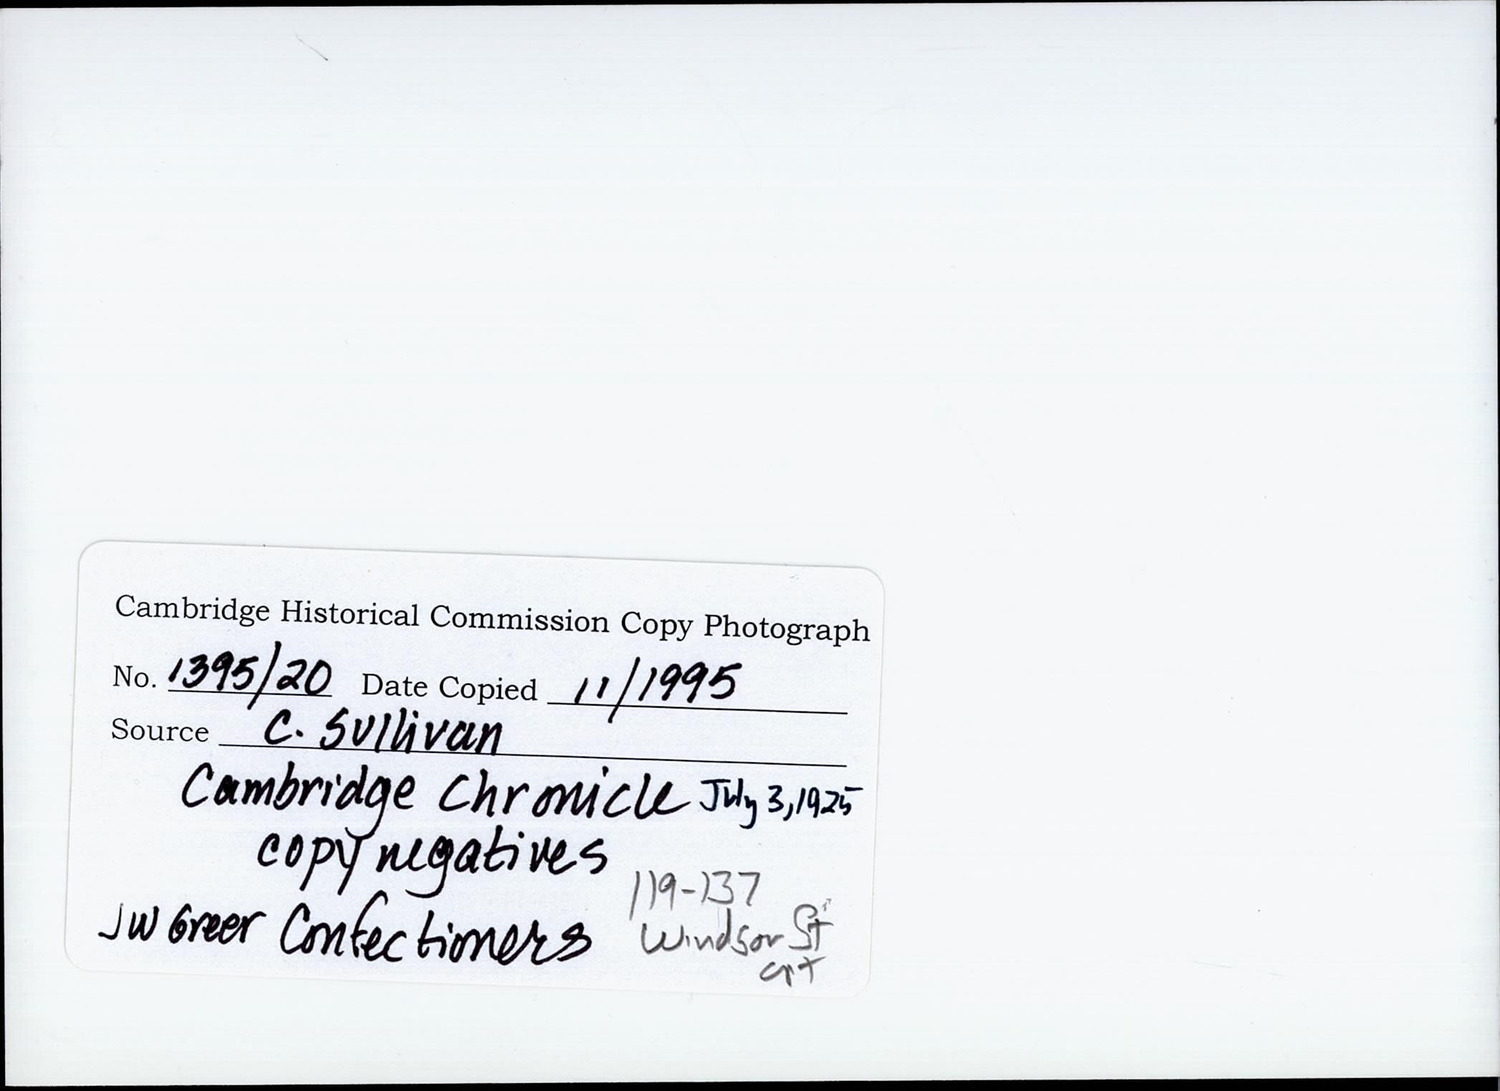 Cambridge Historical Commission Copy Photograph
No. 1395/20 Date Copied 11/1995
Source C. Sullivan
Cambridge Chronicle July 3, 1925
copy negatives
JW Greer Confectioners
119-137
Windsor St